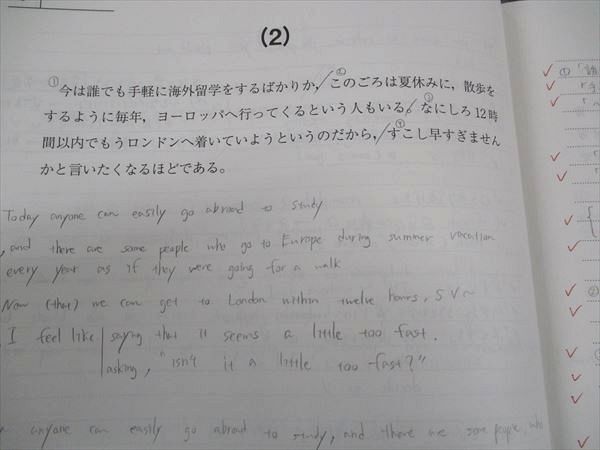 (2)
① 今は誰でも手軽に海外留学をするばかりか,／②このごろは夏休みに, 散歩を
するように毎年, ヨーロッパへ行ってくるという人もいる。／③なにしろ12時
間以内でもうロンドンへ着いていようというのだから,／④すこし早すぎません
かと言いたくなるほどである。
Today anyone can easily go abroad to study
, and there are some people who go to Europe during summer vacation
every year as if they were going for a walk
Now (that) we can get to London within twelve hours, S V ~
I feel like saying that it seems a little too fast.
asking, "isn't it a little too fast?"
anyone can easily go abroad to study, and there are some people, who
① 「誰
②